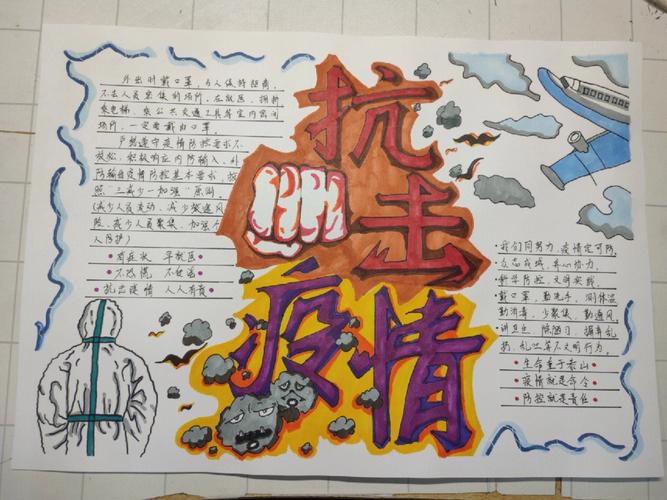 外出时戴口罩，与人保持距离，
不去人员密集的场所。在就医、拥挤
乘电梯、乘公共交通工具等室内密闭
场所，一定要戴由口罩。
严格遵守疫情防控要求不
放松，积极响应内防输入、外
防输出疫情防控基本要求，按
照“三减少一加强”原则。
(减少人员流动、减少旅途风
险、减少人员聚集、加强个
人防护)
有症状 早就医
不恐慌 不
抗击疫情 人人有责
抗击
疫情
我们同努力，疫情定可防。
众志成城，齐心协力。
科学防控，文明实践。
戴口罩，勤洗手，测体温
勤消毒，少聚集，勤通风
讲卫生，除陋习，摒弃乱
扔、乱吐等不文明行为。
生命重于泰山
疫情就是命令
防控就是责任